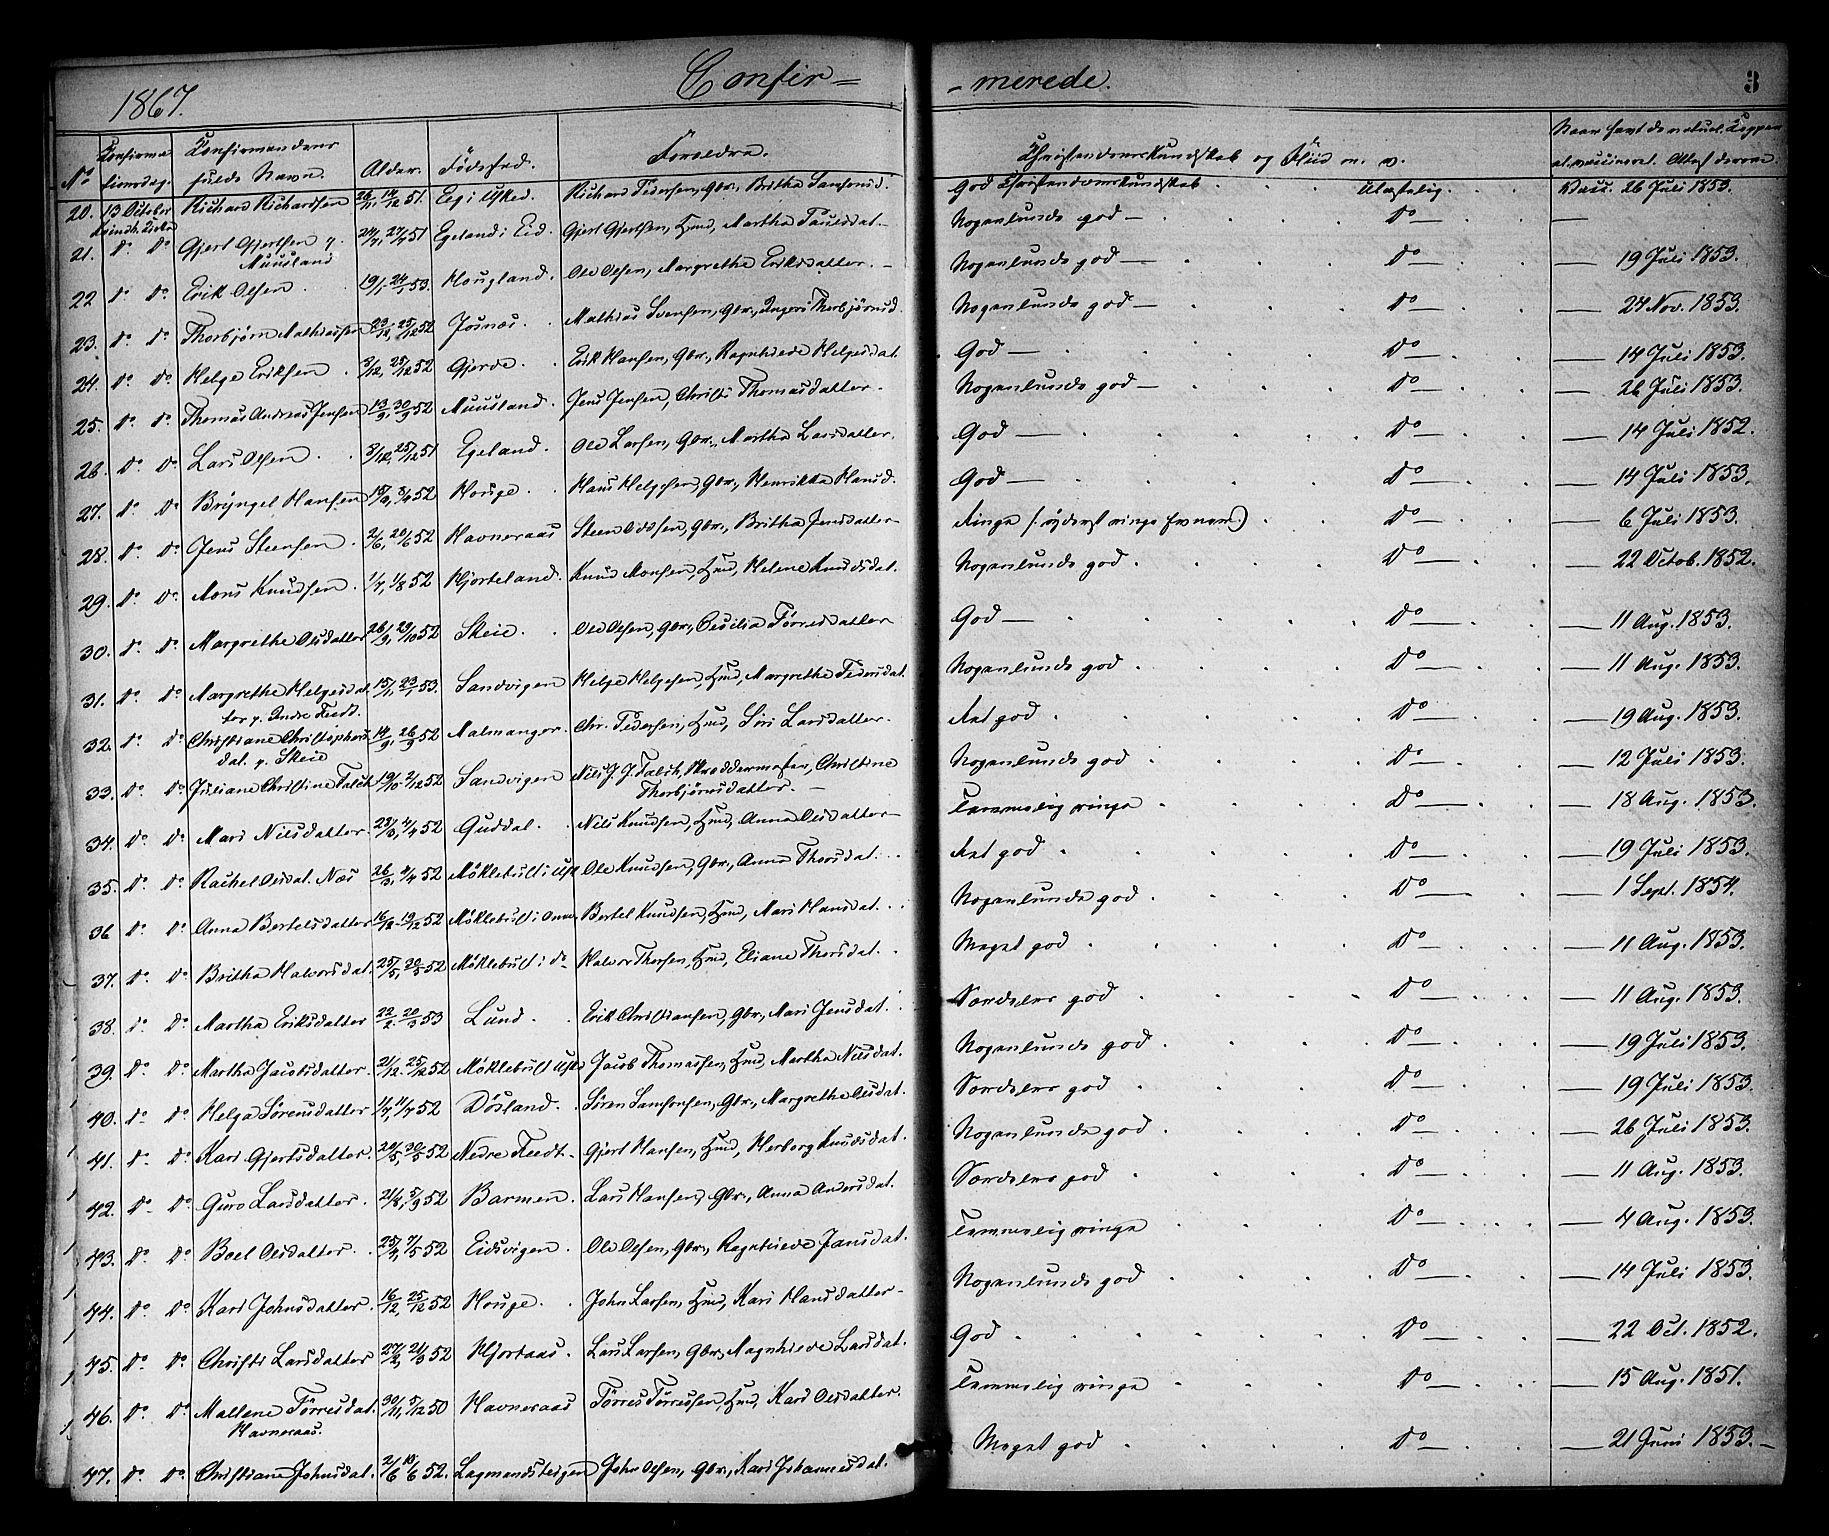 1867.
Confir=
-merede.
3
No
Confirma
tionsdag.
Confirmandens
fulde Navn.
Alder.
Födested.
Foreldre.
Christendomskundskab og Flid m. v.
20. 13 October Richard Richardsen 51. Eeg i Ulsted. Richard Pedersen, Gbr., Britha Samsonsd. God Christendomskundskab Ulastelig Vacc. 26 Juli 1853.
21. Do Do Gjert Gjertsen p. 24/7, 27/7 51 Egeland i Eid. Gjert Gjertsen, Hmd, Martha Paulsdat. Nogenlunde god Do
Muusland
22 Do Do Erik Olsen 19/1, 24/1 53. Hougland. Ole Olsen, Margrethe Eriksdatter. Nogenlunde god Do 19 Juli 1853.
23. Do Do Thorbjørn Mathiassen 52 Josnæs. Mathias Svensen, Gbr., Inger Thorbjörnsd. Nogenlunde god Do 24 Nov. 1853.
24. Do Do Helge Eriksen 25/12 52 Gjerde. Erik Hansen, Gbr., Ragnhilde Helgesdat. God Do 14 Juli 1853.
25. Do Do Thomas Andreas Jensen 13/9, 30/9 52 Muusland. Jens Jensen, Christi Thomasdatter. Nogenlunde god Do 26 Juli 1853.
26. Do Do Lars Olsen 25/12 51 Egeland. Ole Larsen, Gbr., Martha Larsdatter. God Do 14 Juli 1852.
27. Do Do Bryngel Hansen 52 Houge. Hans Helgesen, Gbr., Henrikka Hansd. God Do 14 Juli 1853.
28. Do Do Jens Steensen 2/6, 20/6 52 Havneraas Steen Olsen, Gbr., Britha Jensdatter Ringe (yderst ringe Evner.) Do 6 Juli 1853.
29. Do Do Mons Knudsen 1/7, 1/8 52 Hjorteland. Knud Monsen, Hmd, Helene Knudsdat. Nogenlunde god Do 22 Octob. 1852.
30. Do Do Margrethe Olsdatter 52 Skeie. Ole Olsen, Gbr., Cecilia Tørresdatter God Do 11 Aug. 1853.
31. Do Do Margrethe Helgesdat 15/1, 23/1 53. Sandvigen Helge Helgesen, Hmd, Margrethe Pedersdat. Nogenlunde god Do 11 Aug. 1853.
ter p. Indre Feedt.
32. Do Do Christiane Christophers 14/9, 26/9 52 Malmanger. Chr. Pedersen, Hmd, Siri Larsdatter. Ret god Do 19 Aug. 1853.
dat. p. Skeie
33. Do Do Juliane Christine Falch 52 Sandvigen Nils J. J. Falch, Skreddermester, Christine Nogenlunde god Do 12 Juli 1853.
Thorbjørnsdatter.
34. Do Do Mari Nilsdatter 52 Guddal. Nils Knudsen, Hmd, Anna Olsdatter Temmelig ringe Do 18 Aug. 1853.
35. Do Do Rachel Olsdat. Næs 26/3, 4/4 52 Møklebust i Ulst Ole Knudsen, Gbr., Anna Thorsdat. Ret god Do 19 Juli 1853.
36 Do Do Anna Bertelsdatter 52 Møklebust i Bertel Knudsen, Hmd, Mari Hansdat. Nogenlunde god Do 1 Sept. 1854.
37. Do Do Britha Halvorsdat. 52 Møklebust i do Halvor Thorsen, Hmd, Eliane Thorsdat. Meget god Do 11 Aug. 1853.
38. Do Do Martha Eriksdatter 22/2, 20/3 53 Lund. Erik Christiansen, Gbr., Mari Jensdat. Særdeles god Do 11 Aug. 1853.
39. Do Do Martha Jacobsdatter. 21/12. 25/12 52 Møklebust Ulst. Jacob Thomassen, Hmd, Martha Nilsdat. Nogenlunde god Do 19 Juli 1853.
40. Do Do Helga Sørensdatter 1/7, 11/7 52 Døsland. Søren Samsonsen, Gbr., Margrethe Olsdat. Særdeles god Do 19 Juli 1853.
41. Do Do Kari Gjertsdatter. 30/5 52 Nedre Feedt. Gjert Hansen, Hmd, Herborg Knudsdat. Nogenlunde god Do 26 Juli 1853.
42. Do Do Guro Larsdatter. 21/8, 5/9 52 Barmen. Lars Hansen, Gbr., Anna Andersdat. Særdeles god Do 11 Aug. 1853.
43. Do Do Boel Olsdatter. 52 Eidsvigen. Ole Olsen, Gbr., Ragnhilde Jansdat. Temmelig ringe Do 4 Aug. 1853.
44. Do Do Kari Johnsdatter. 16/12, 25/12 52 Houge. John Larsen, Hmd, Kari Hansdatter Nogenlunde god Do 14 Juli 1853.
45. Do Do Christi Larsdatter 52 Hjortaas. Lars Larsen, Gbr., Magnhilde Larsdat. God Do 22 Oct. 1852.
46. Do Do Mallene Tørresdat. 30/11, 5/12 50 Havneraas Tørres Tørressen, Hmd, Kari Olsdatter. Temmelig ringe Do 15 Aug. 1851.
Havneraas.
47. Do Do Christiane Johnsdat. 52. Lagmandsteigen John Olsen, Gbr., Kari Johannesdat. Meget god Do 21 Juni 1853.